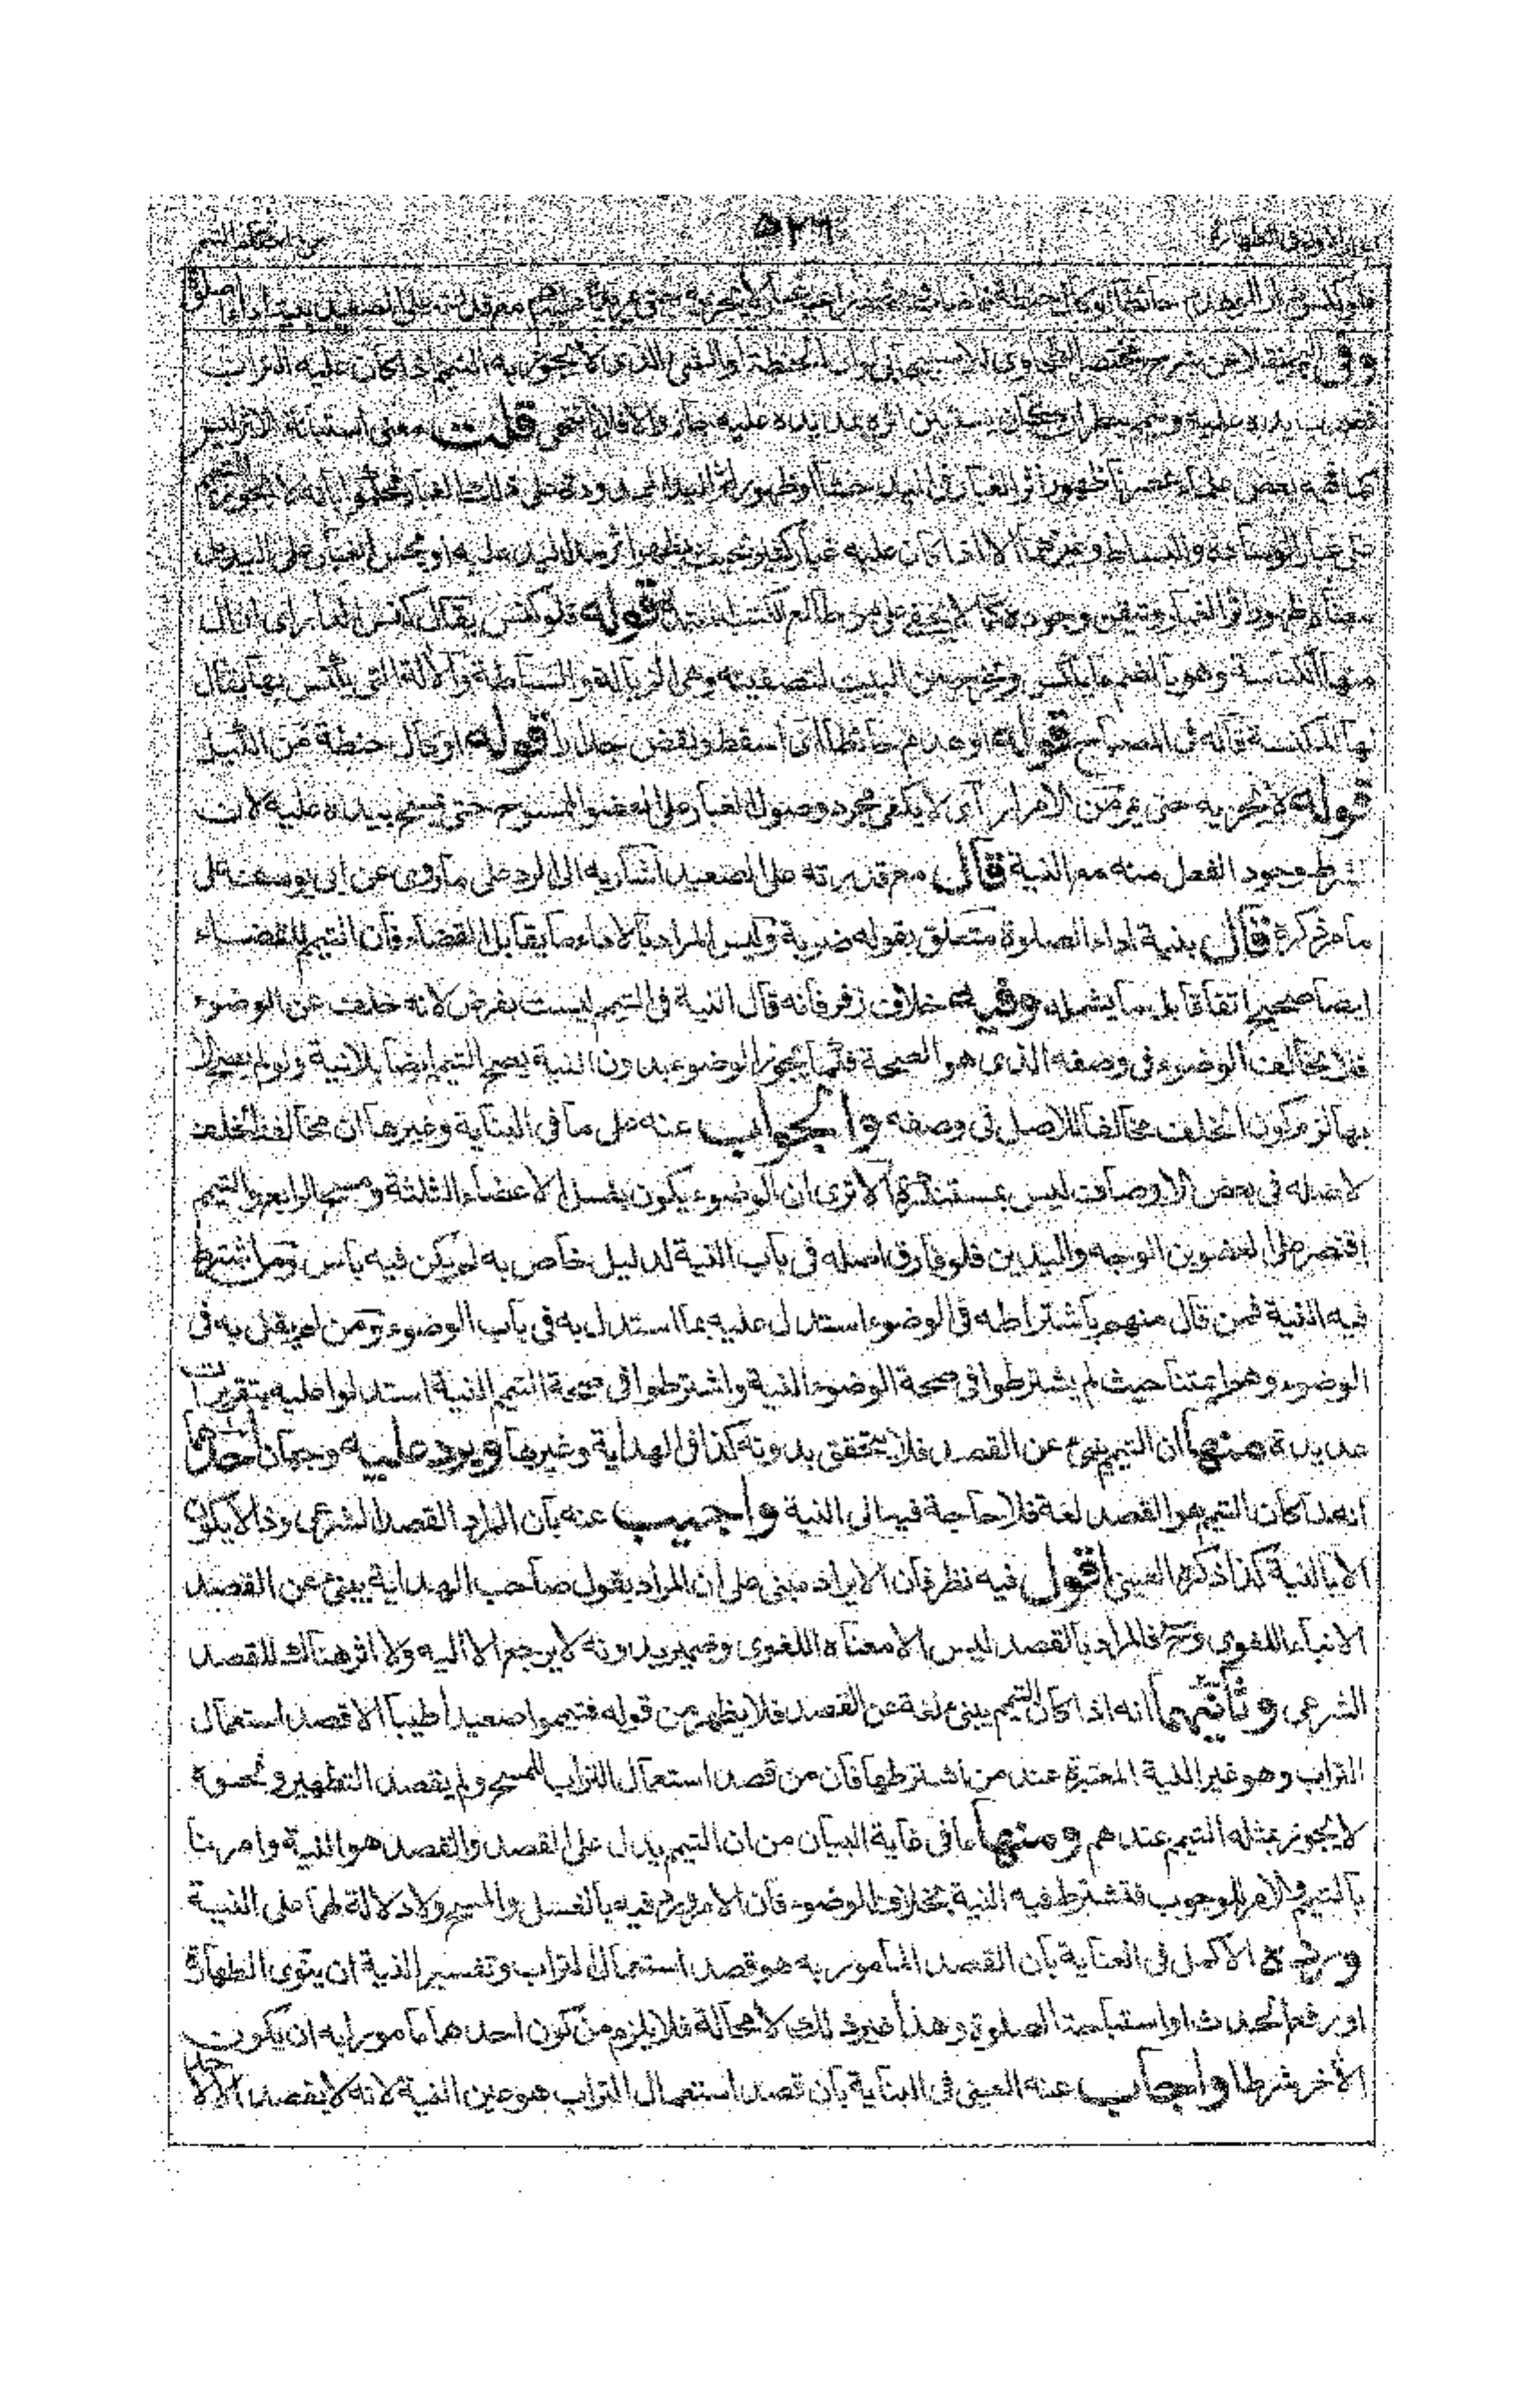 ٥٢٦
فلو كنس دارا او هدم حائطا او كال حنطة فاصاب وجهه غبار لا يجزيه حتى يمر يده عليه مع قدرته على الصعيد بنية اداء الصلوة
وفي شرح مختصر الطحاوي للاسبيجابي الحنطة او الشيء الذي لا يجوز به التيمم اذا كان عليه التراب
فضرب يده عليه وتيمم ينظر ان كان يستبين اثره بمد يده عليه جاز والا فلا انتهى قلت معنى استبانة الاثر ليس
كما فهم بعض ظهور اثر الغبار في اليد ظهور اثر اليد على ذلك الغبار انه لا يجوز
على غبار الوسادة والبساط وغيرهما الا اذا كان عليه غبار كثير بحيث يظهر اثر مد اليد عليه
معناه ظهور اثر الغبار وتيقن وجوده كما لا يخفى على من طالع كتب قوله فلو كنس يقال كنس الدار اي ازال
منها الكناسة وهو بالضم ما يكنس من البيت لتصفيته وهي الزبالة والسباطة والآلة التي يكنس بها يقال
لها المكنسة قاله في المصباح قوله او هدم حائطا اي اسقط ونقض جدارا قوله او كال حنطة من الكيل
قوله لا يجزيه حتى يمر من الامرار اي لا يكفي مجرد وصول الغبار على العضو الممسوح حتى يمسح بيده عليه لان
شرط وجود الفعل منه مع النية قال مع قدرته على الصعيد اشار به الى الرد على ما روي عن ابي يوسف على
ما مر ذكره قال بنية اداء الصلوة متعلق بقوله ضربة وليس المراد بالاداء ما يقابل القضاء فان التيمم للقضاء
ايضا صحيح اتفاقا بل ما يشمله وفيه خلاف زفر فانه قال النية في التيمم ليست بفرض لانه خلف عن الوضوء
فلا يخالف الوضوء في وصفه الذي هو الصحة فلما يجوز الوضوء بدون النية يصح التيمم ايضا بلا نية ولو لم يصح الا
بها لزم كون الخلف مخالفا للاصل في وصفه والجواب عنه على ما في البناية وغيرها ان مخالفة الخلف
لاصله في بعض الاوصاف ليس بمستنكر الا ترى ان الوضوء يكون بغسل الاعضاء الثلثة ومسح الرابع والتيمم
اقتصر على العضوين الوجه واليدين فلو فارق اصله في باب النية لدليل خاص به لم يكن فيه باس ومن اشترط
فيه النية فمن قال منهم باشتراطه في الوضوء استدل عليه بما استدل به في باب الوضوء ومن لم يقل به في
الوضوء وهم ائمتنا حيث لم يشترطوا في صحة الوضوء النية واشترطوا في صحة التيمم النية استدلوا عليه بتقريرات
عديدة منها ان التيمم ينبئ عن القصد فلا يتحقق بدونه كذا في الهداية وغيرها ويرد عليه وجهان احدهما
انه لما كان التيمم هو القصد لغة فلا حاجة فيه الى النية واجيب عنه بان المراد القصد الشرعي وذا لا يكون
الا بالنية كذا ذكره العيني اقول فيه نظر فان الايراد مبني على ان المراد بقول صاحب الهداية ينبئ عن القصد
الانباء اللغوي وح فالمراد بالقصد ليس الا معناه اللغوي وضمير بدونه لا يرجع الا اليه ولا اثر هناك للقصد
الشرعي وثانيهما انه اذا كان التيمم ينبئ لغة عن القصد فلا يظهر من قوله فتيمموا صعيدا طيبا الا قصد استعمال
التراب وهو غير النية المعتبرة عند من اشترطها فان من قصد استعمال التراب للمسح ولم يقصد التطهير ونحوه
لا يجوز بمثله التيمم عندهم ومنها ما في غاية البيان من ان التيمم يدل على القصد والقصد هو النية وامرنا
بالتيمم والامر للوجوب فتشترط فيه النية بخلاف الوضوء فان الامر ورد فيه بالغسل والمسح ولا دلالة لهما على النية
ورده الاكمل في العناية بان القصد المأمور به هو قصد استعمال التراب وتفسير النية ان ينوي الطهارة
او رفع الحدث او استباحة الصلوة وهذا غير ذلك لا محالة فلا يلزم من كون احدهما مأمورا به ان يكون
الآخر شرطا واجاب عنه العيني في البناية بان قصد استعمال التراب هو عين النية لانه لا يقصد الا لاجل